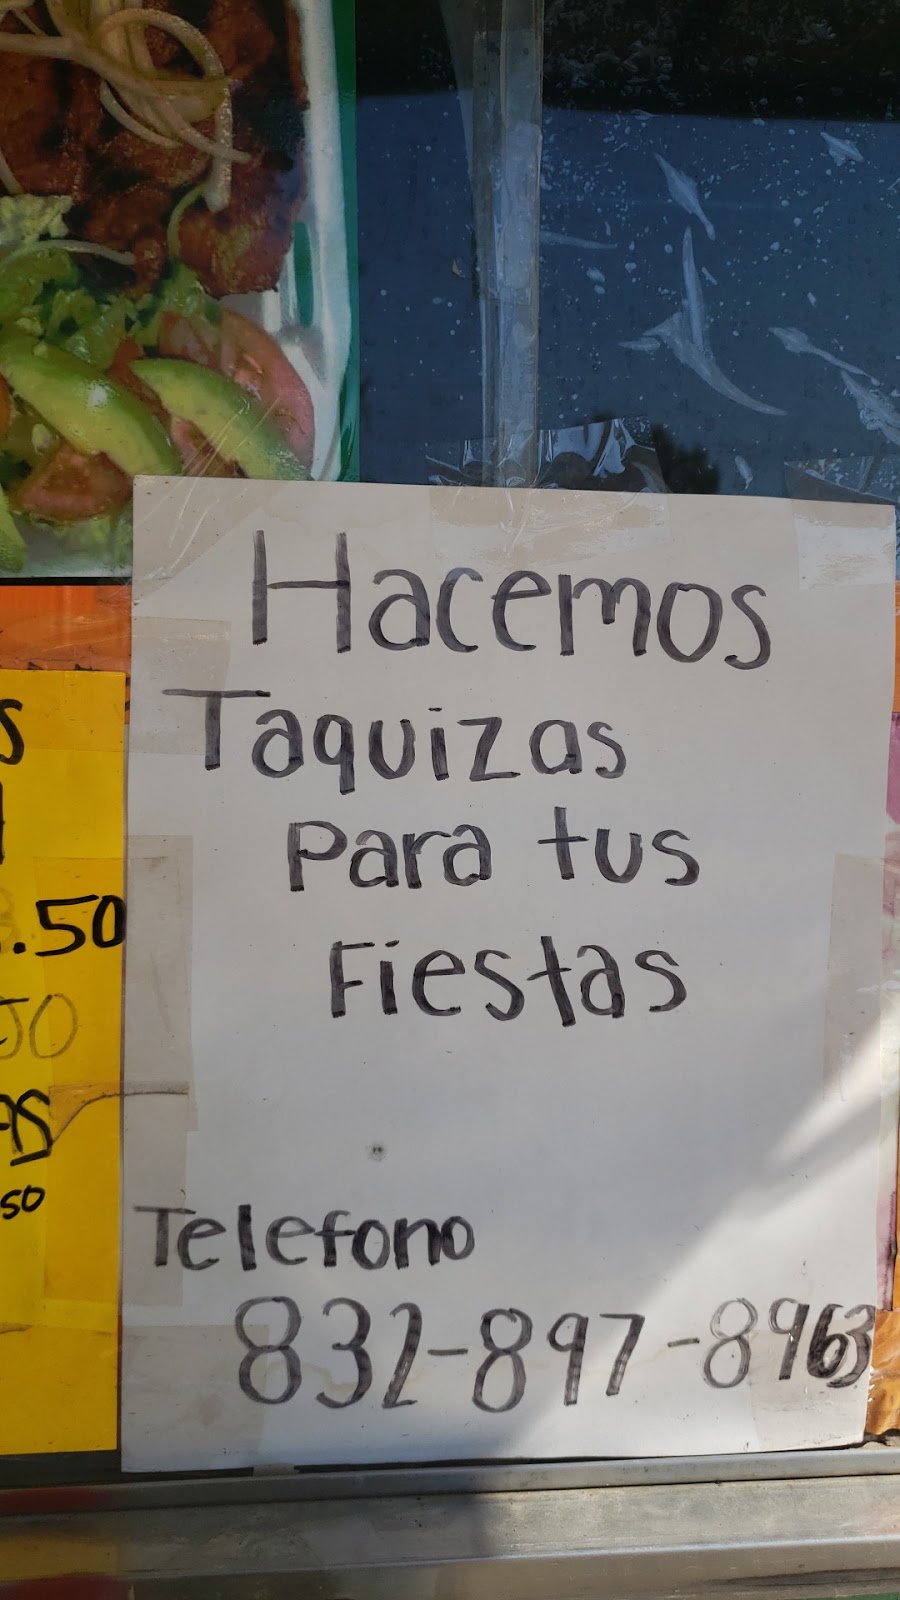 Hacemos
Taquizas
Para tus
Fiestas
Telefono
832-897-8963
.50
AS
50